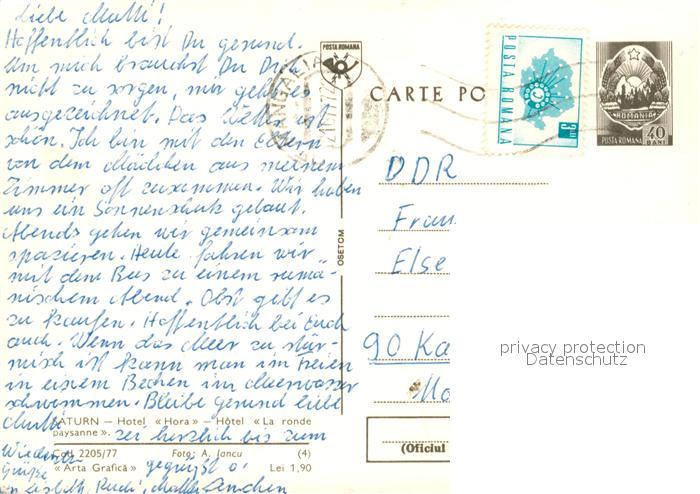 Liebe Mutti!
Hoffentlich bist Du gesund.
Um mich brauchst Du Dich
nicht zu sorgen, mir geht es
ausgezeichnet. Das Wetter ist
schön. Ich bin mit den Eltern
von dem Mädchen aus meinem
Zimmer oft zusammen. Wir haben
uns ein Sonnenschutz gebaut.
Abends gehen wir gemeinsam
spazieren. Heute fahren wir
mit dem Bus zu einem rumä-
nischem Abend. Obst gibt es
zu kaufen. Hoffentlich bei Euch
auch. Wenn das Meer zu stür-
misch ist kann man im Freien
in einem Becken im Meerwasser
schwimmen. Bleibe gesund liebe
Mutti
sei herzlich bis zum
Wieder
Grüße gegrüßt
SATURN – Hotel «Hora» – Hôtel «La ronde
paysanne».
Cod 2205/77 Foto: A. Iancu (4)
«Arta Grafică» Lei 1,90
POSTA ROMANA
MANGALIA
CARTE PO
POSTA ROMANA
3
ROMANIA
POSTA ROMANA 40 BANI
OSETOM
DDR
Frau
Else
90 Ka
(Oficiul
privacy protection
Datenschutz